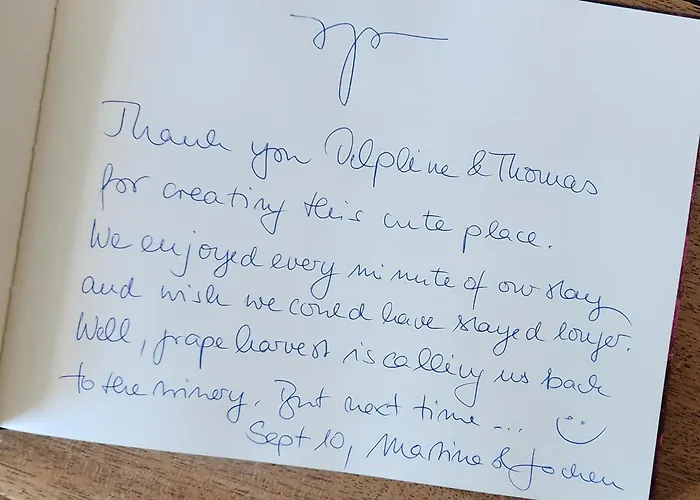 Thank you Delphine & Thomas
for creating this cute place.
We enjoyed every minute of our stay
and wish we could have stayed longer.
Well, grape harvest is calling us back
to the winery. But next time ...
Sept 10, Martina & Jochen